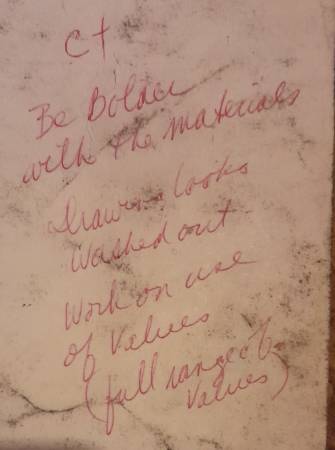 C+
Be Bolder
with the materials
Drawing looks
Washed out
Work on use
of Values
(full range of
Values)